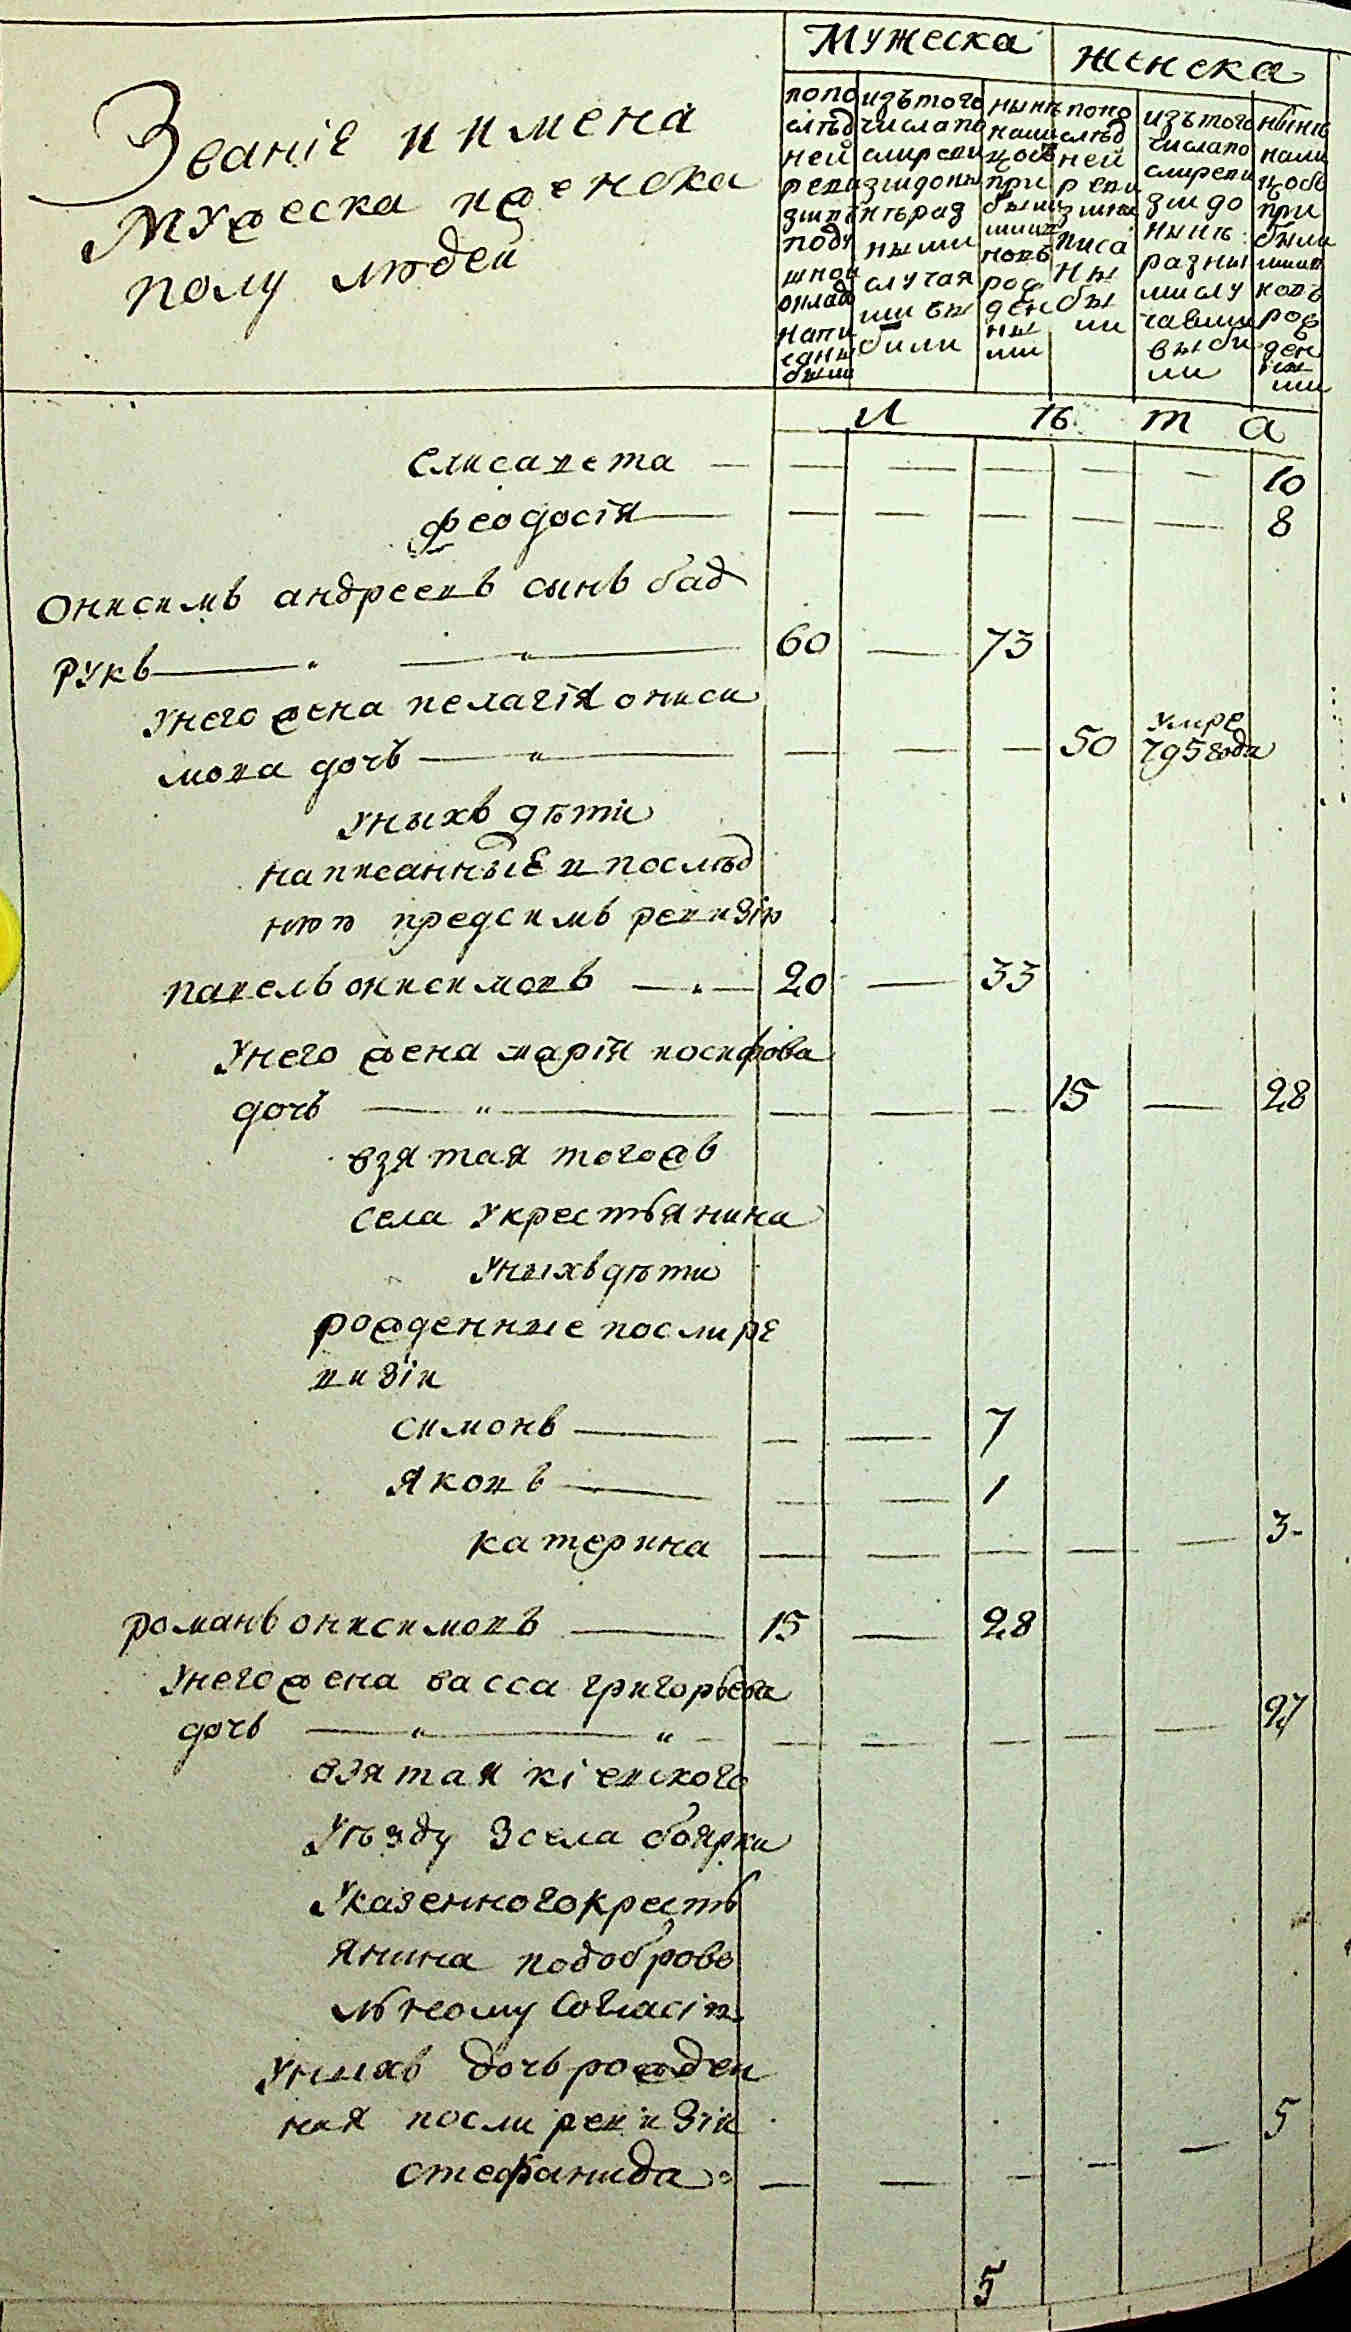 Званіе и имена
мужеска и женска
полу людей
Мужеска
женска
попо
слѣд
ней
реви
зіи в
поду
шной
оклад
напи
саны
были
изътого
числа по
слиреви
зіи доны
нѣ раз
ными
случая
ми вы
били
нынѣ
нали
цобъ
при
были
ми и
новъ
рож
ден
ны
ми
попо
слѣд
ней
реви
зіи на
писа
ны
бы
ли
изътого
числа по
слиреви
зіи до
нынѣ
разны
ми слу
чаями
выби
ли
нынѣ
нали
цобъ
при
были
ми и
новъ
рож
ден
ны
ми
л ѣ т а
елисавета — — — — — — 10
феодосія — — — — — — 8
Онисимъ андреевъ сынъ бад
рукъ — 60 — 73
Унего жена пелагія ониси
мова дочь — — — — 50 умре 795 года
Уныхъ дѣти
написанные в послѣд
нюю предсимъ ревизію
павелъ онисимовъ — 20 — 33
Унего жена марія иосифова
дочь — — — — 15 — 28
взятая тогожъ
села Укрестьянина
Уныхъ дѣти
рожденные посли ре
визіи
симонъ — — — 7
Яковъ — — — 1
катерина — — — — — 3
романъ онисимовъ — 15 — 28
Унего жена васса григорьева
дочь — — — — — — 27
взятая кіевского
Уѣзду Зсела боярки
Указенного кресть
янина подоброво
льному Согласію
Унихъ дочь рожден
ная посли ревизіи
стефанида — — — — — 5
5